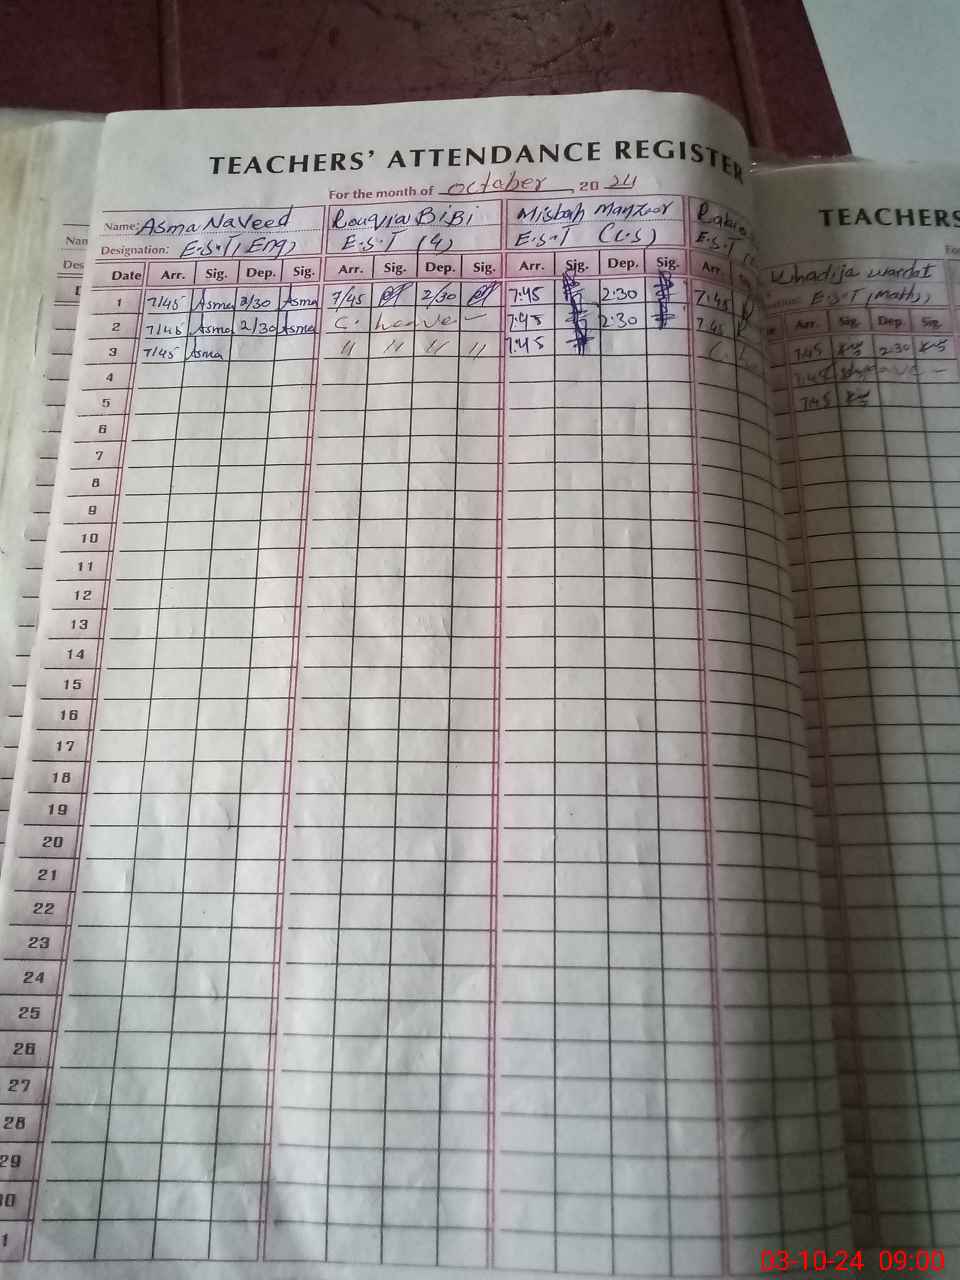 TEACHERS' ATTENDANCE REGISTER
For the month of October, 20 24
Name: Asma Naveed Rouqia BiBi Misbah Manzoor
Designation: E.S.T (Eng) E.S.T (4) E.S.T
Date Arr. Sig. Dep. Sig. Arr. Sig. Dep. Sig. Arr. Sig. Dep. Sig. Arr.
1 7/45 Asma 2/30 Asma 7/45 2/30 7:45 2:30 7:45
2 7/45 Asma 2/30 Asma C. Leave 7:45 2:30 7:45
3 7/45 Asma " " " " 7:45
4
5
6
7
8
9
10
11
12
13
14
15
16
17
18
19
20
21
22
23
24
25
26
27
28
29
30
1
TEACHERS
Khadija
E.S.T (Math)
Arr. Sig. Dep. Sig.
7:45 2:30
7:45
7:45
Nam
Des
03-10-24 09:00